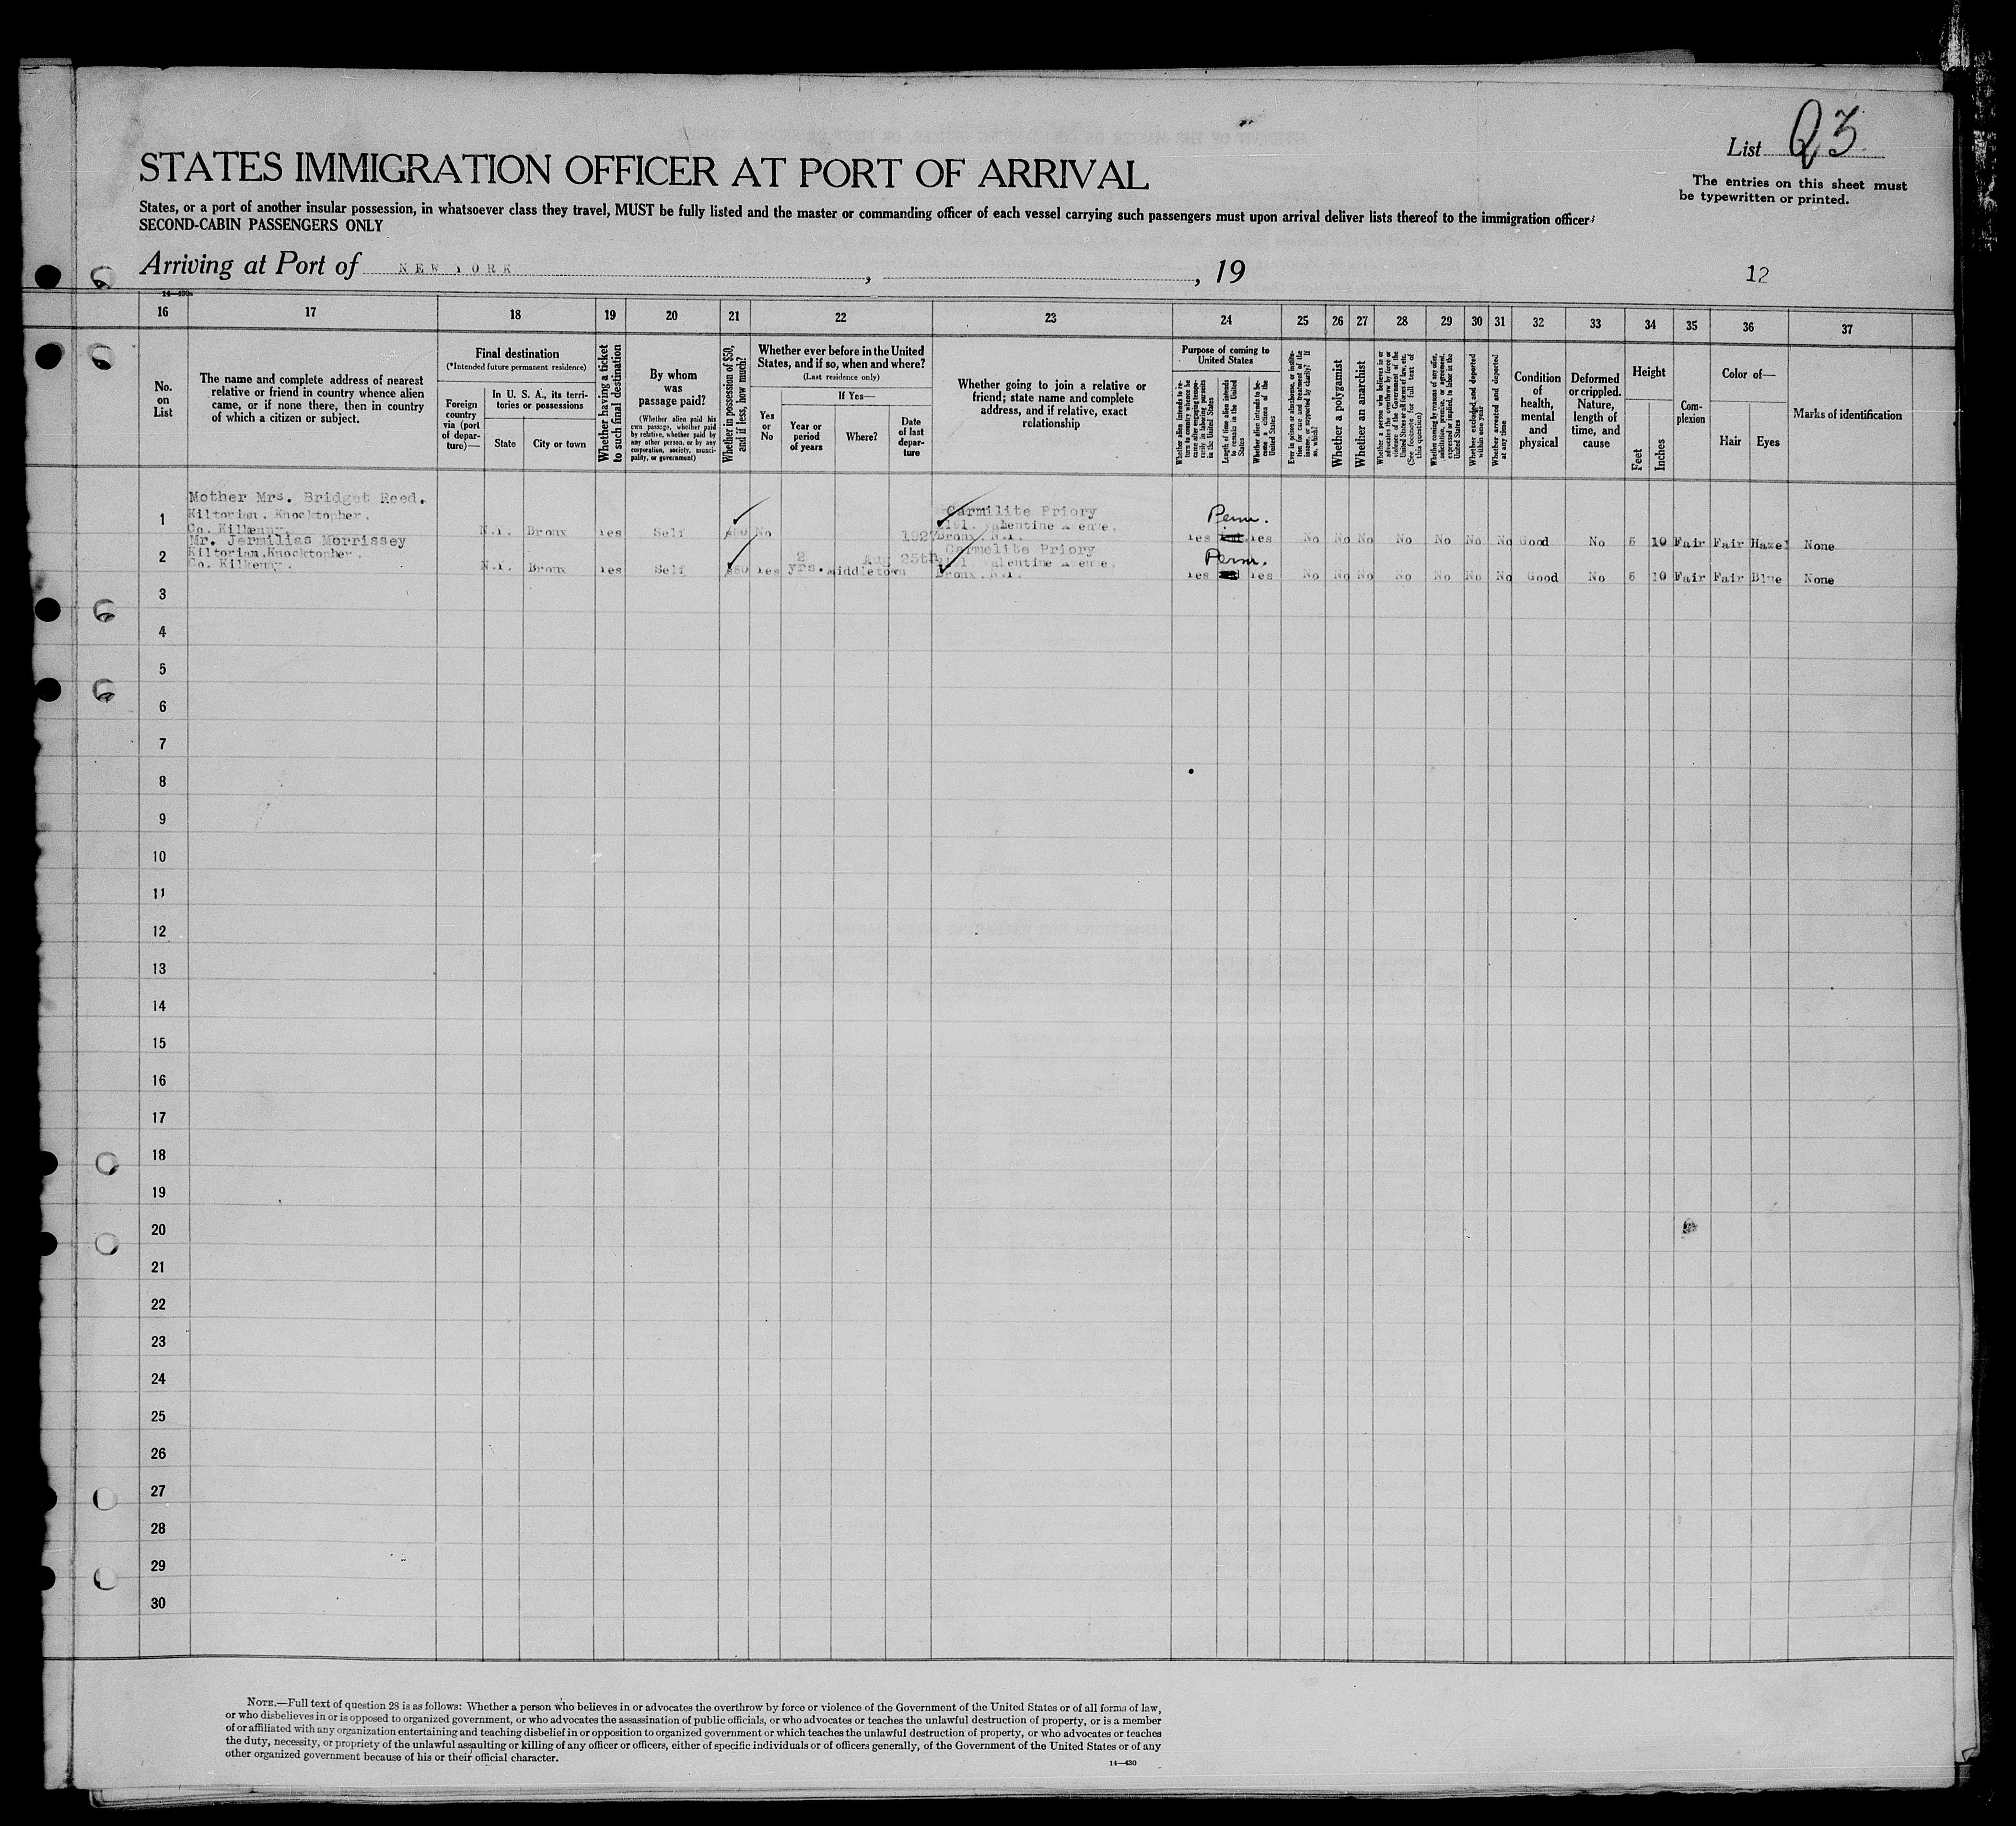 List Q3
The entries on this sheet must
be typewritten or printed.
STATES IMMIGRATION OFFICER AT PORT OF ARRIVAL
States, or a port of another insular possession, in whatsoever class they travel, MUST be fully listed and the master or commanding officer of each vessel carrying such passengers must upon arrival deliver lists thereof to the immigration officer
SECOND-CABIN PASSENGERS ONLY
Arriving at Port of NEW YORK , , 19
12
14—430
16 17 18 19 20 21 22 23 24 25 26 27 28 29 30 31 32 33 34 35 36 37
No.
on
List
The name and complete address of nearest
relative or friend in country whence alien
came, or if none there, then in country
of which a citizen or subject.
Final destination
(*Intended future permanent residence)
Foreign
country
via (port
of depar-
ture)—
In U. S. A., its terri-
tories or possessions
State
City or town
Whether having a ticket
to such final destination
By whom
was
passage paid?
(Whether alien paid his
own passage, whether paid
by relative, whether paid by
any other person, or by any
corporation, society, munici-
pality, or government)
Whether in possession of $50,
and if less, how much?
Whether ever before in the United
States, and if so, when and where?
(Last residence only)
Yes
or
No
If Yes—
Year or
period
of years
Where?
Date
of last
depar-
ture
Whether going to join a relative or
friend; state name and complete
address, and if relative, exact
relationship
Purpose of coming to
United States
Whether alien intends to re-
turn to country whence he
came after engaging tempo-
rarily in laboring pursuits
in the United States
Length of time alien intends
to remain in the United
States
Whether alien intends to be-
come a citizen of the
United States
Ever in prison or almshouse, or institu-
tion for care and treatment of the
insane, or supported by charity? If
so, which?
Whether a polygamist
Whether an anarchist
Whether a person who believes in or
advocates the overthrow by force or
violence of the Government of the
United States or all forms of law, etc.
(See footnote for full text of
this question)
Whether coming by reasons of any offer,
solicitation, promise, or agreement,
expressed or implied, to labor in the
United States
Whether excluded and deported
within one year
Whether arrested and deported
at any time
Condition
of
health,
mental
and
physical
Deformed
or crippled.
Nature,
length of
time, and
cause
Height
Feet
Inches
Com-
plexion
Color of—
Hair
Eyes
Marks of identification
Mother Mrs. Bridget Reed.
Kiltorian. Knocktopher.
Co. Kilkenny.
1 N.Y. Bronx Yes Self $50 No
1927
Carmilite Priory
Valentine Avenue.
Bronx. N.Y.
Perm.
Yes Yes No No No No No No No Good No 5 10 Fair Fair Hazel None
Mr. Jermilias Morrissey
Kiltorian.Knocktopher.
Co. Kilkenny.
2 N.Y. Bronx Yes Self $50 Yes 2 yrs. Middletown Aug 25th
Carmelite Priory
Valentine Avenue.
Bronx. N.Y.
Perm.
Yes Yes No No No No No No No Good No 5 10 Fair Fair Blue None
3
4
5
6
7
8
9
10
11
12
13
14
15
16
17
18
19
20
21
22
23
24
25
26
27
28
29
30
NOTE.—Full text of question 28 is as follows: Whether a person who believes in or advocates the overthrow by force or violence of the Government of the United States or of all forms of law,
or who disbelieves in or is opposed to organized government, or who advocates the assassination of public officials, or who advocates or teaches the unlawful destruction of property, or is a member
of or affiliated with any organization entertaining and teaching disbelief in or opposition to organized government or which teaches the unlawful destruction of property, or who advocates or teaches
the duty, necessity, or propriety of the unlawful assaulting or killing of any officer or officers, either of specific individuals or of officers generally, of the Government of the United States or of any
other organized government because of his or their official character.
14—430